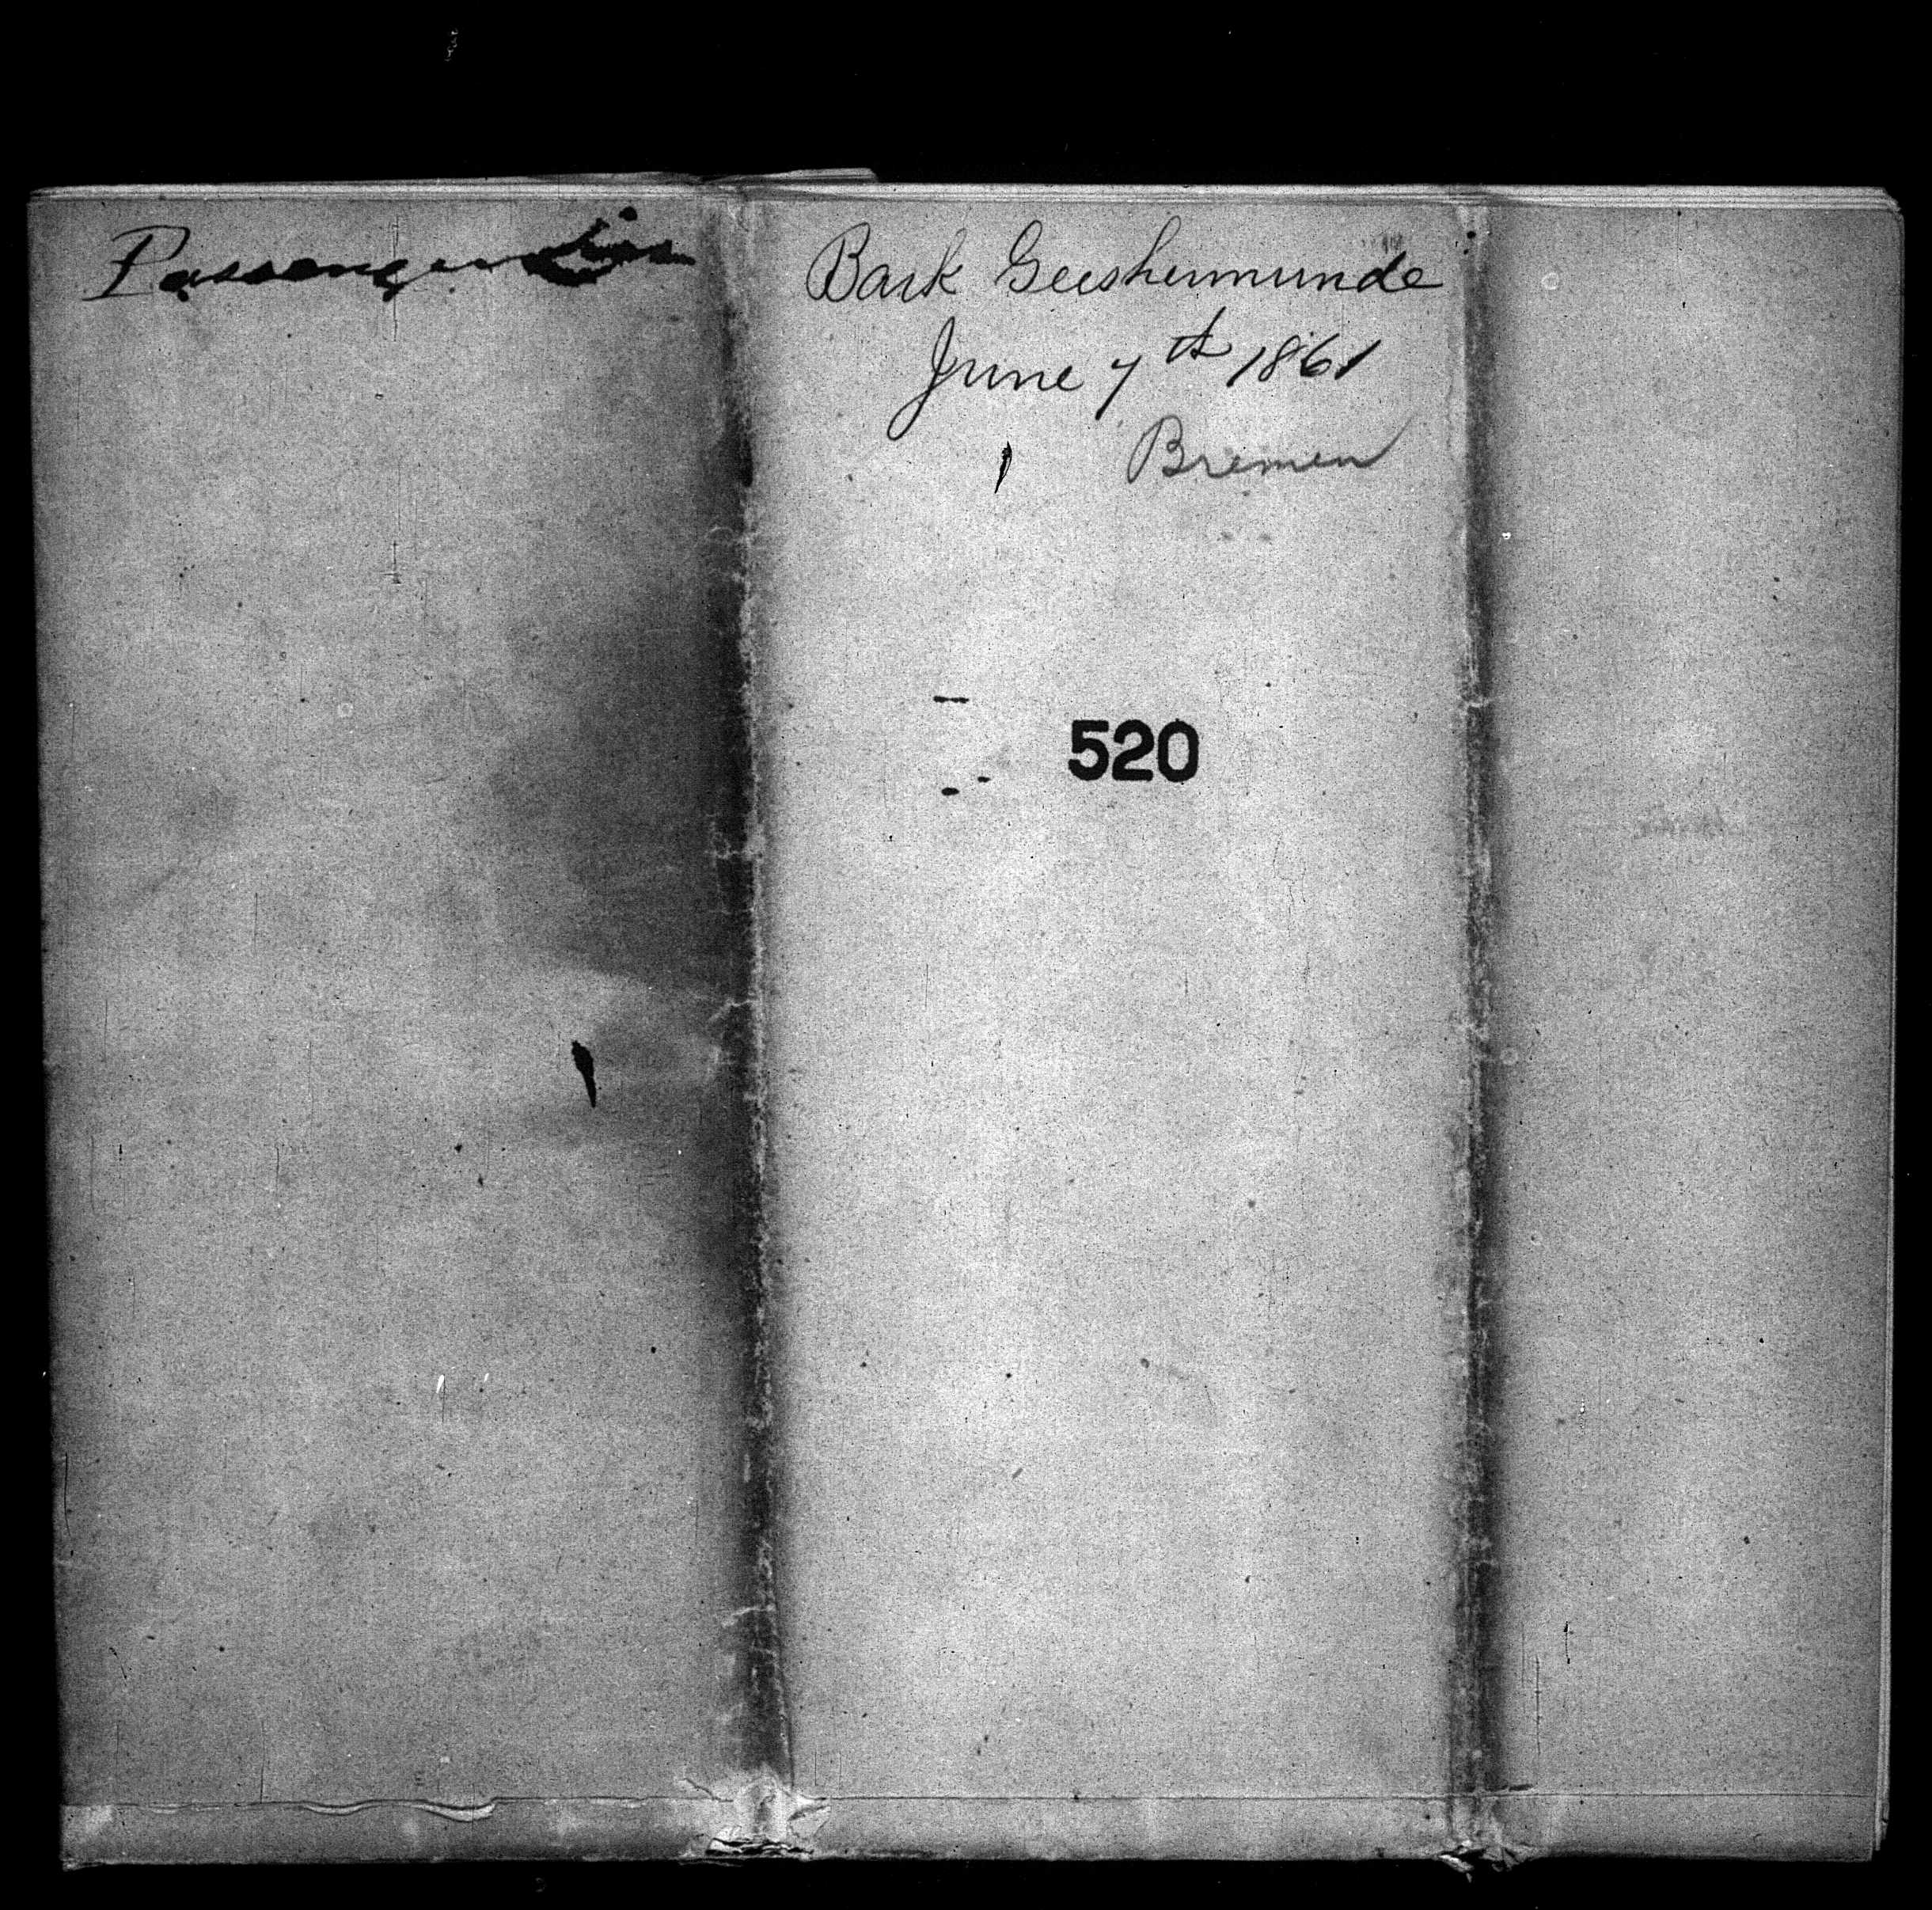 Passenger
Bark Geeshermunde
June 7th 1861
Bremen
520